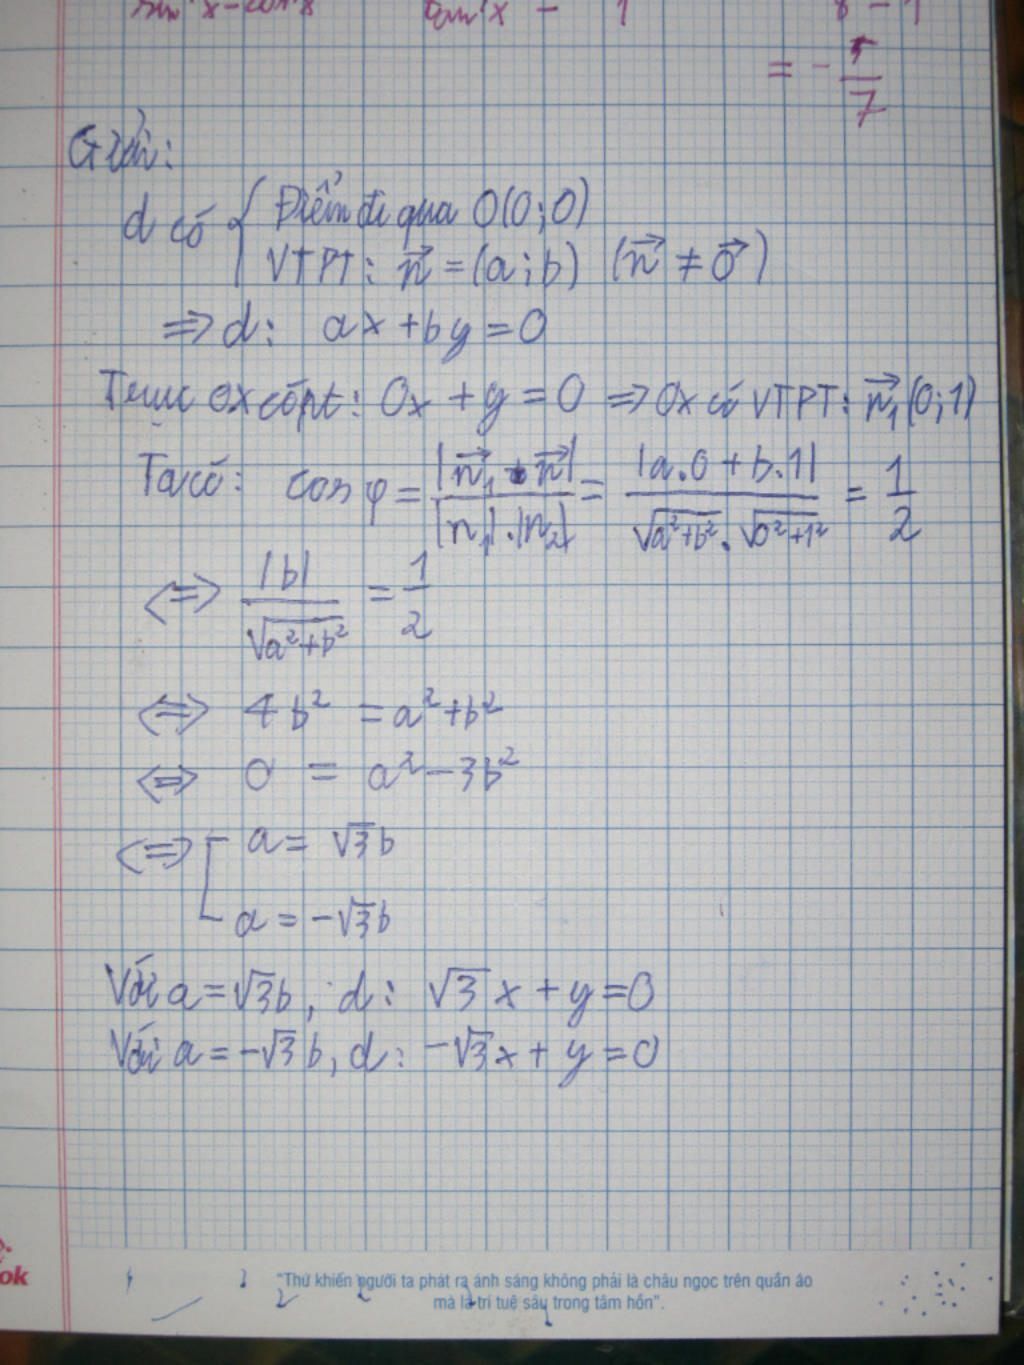 sin³x - cos³x    tan³x - 1    8 - 1
= - 5/7
Giải:
d có { Điểm đi qua O(0;0)
VTPT: n⃗ = (a;b) (n⃗ ≠ 0⃗)
=> d: ax + by = 0
Trục Ox có pt: 0x + y = 0 => Ox có VTPT: n⃗₁(0;1)
Ta có: cos φ = |n⃗₁ . n⃗| / |n₁|.|n₂| = |a.0 + b.1| / √(a²+b²) . √(0²+1²) = 1/2
<=> |b| / √(a²+b²) = 1/2
<=> 4b² = a² + b²
<=> 0 = a² - 3b²
<=> [ a = √3b
a = -√3b
Với a = √3b, d: √3x + y = 0
Với a = -√3b, d: -√3x + y = 0
ok
"Thứ khiến người ta phát ra ánh sáng không phải là châu ngọc trên quần áo
mà là trí tuệ sâu trong tâm hồn".